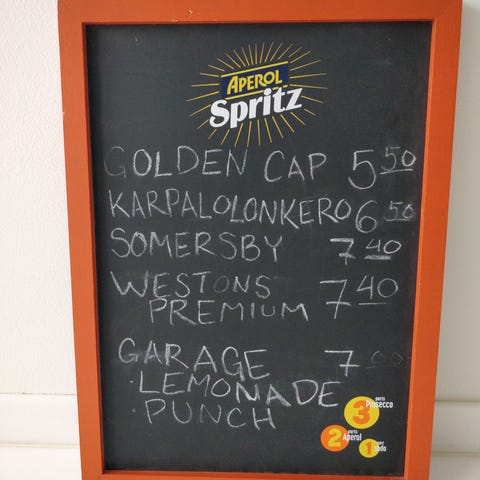 APEROL
Spritz
GOLDEN CAP 5 50
KARPALOLONKERO 6 50
SOMERSBY 7 40
WESTONS
PREMIUM 7 40
GARAGE 7 00
LEMONADE
PUNCH
3 parts Prosecco
2 parts Aperol
1 part soda